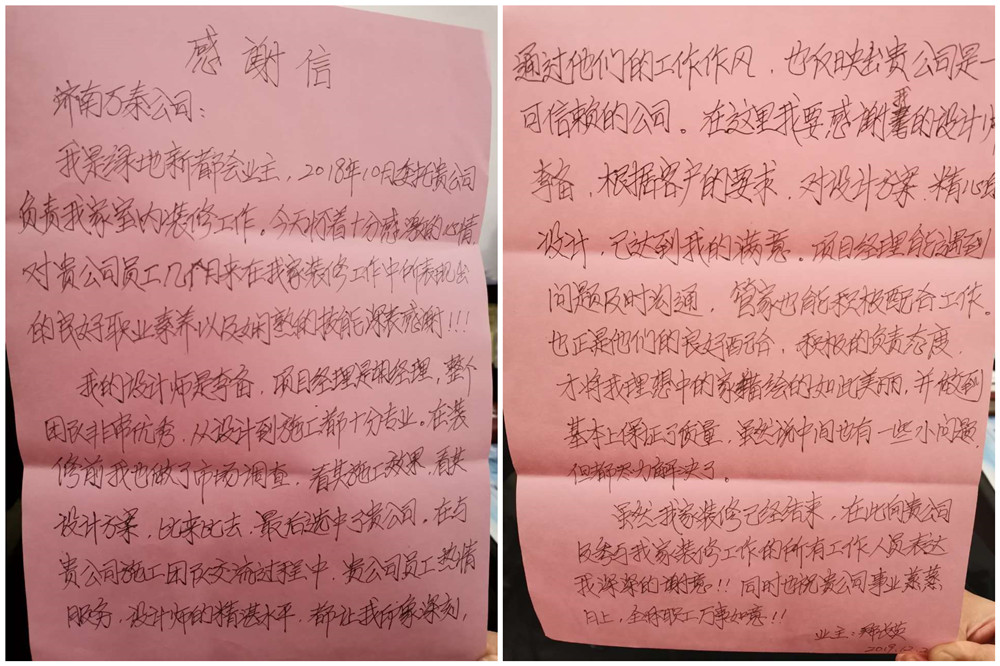 感谢信
济南万泰公司：
我是绿地新都会业主，2018年10月委托贵公司
负责我家室内装修工作。今天怀着十分感激的心情
对贵公司员工几个月来在我家装修工作中所表现出
的良好职业素养以及娴熟的技能深表感谢！！！
我的设计师是李备，项目经理是经理，整个
团队非常优秀，从设计到施工都十分专业。在装
修前我也做了市场调查，看其施工效果，看其
设计方案，比来比去，最后选中了贵公司。在与
贵公司施工团队交流过程中，贵公司员工热情
服务，设计师的精湛水平，都让我印象深刻，
通过他们的工作作风，也反映出贵公司是一
可信赖的公司。在这里我要感谢我的设计师
李备，根据客户的要求，对设计方案精心
设计，已达到我的满意。项目经理能遇到
问题及时沟通，管家也能积极配合工作。
也正是他们的良好配合，积极的负责态度，
才将我理想中的家描绘的如此美丽，并做到
基本上保证了质量，虽然说中间也有一些小问题，
但都尽力解决了。
虽然我家装修已经结束，在此向贵公司
及参与我家装修工作的所有工作人员表达
我深深的谢意！！同时也祝贵公司事业蒸蒸
日上，全体职工万事如意！！
业主：
2019.